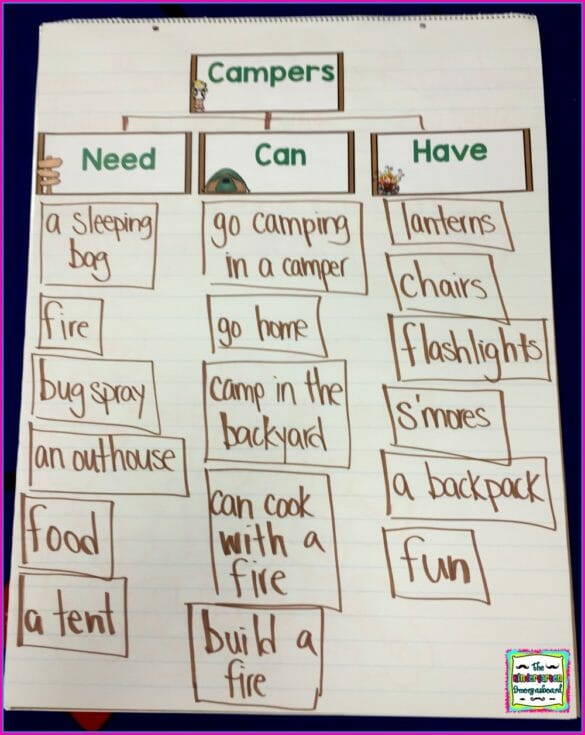 Campers
Need
Can
Have
a sleeping
bag
fire
bug spray
an outhouse
food
a tent
go camping
in a camper
go home
camp in the
backyard
can cook
with a
fire
build a
fire
lanterns
chairs
flashlights
s'mores
a backpack
fun
the
Kindergarten
Smorgasboard